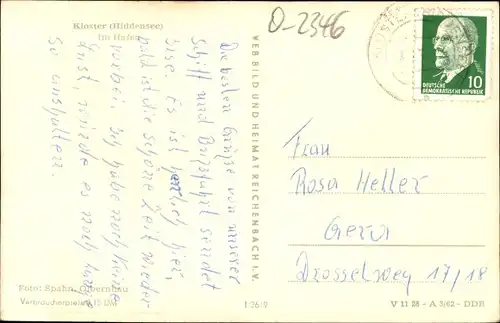 Kloster (Hiddensee)
Im Hafen
O-2346
10
DEUTSCHE
DEMOKRATISCHE REPUBLIK
Die besten Grüße von unserer
Schiff und Busfahrt sendet
Eise. Es ist herrlich hier,
bald ist die schöne Zeit wieder
vorbei. Ich habe noch keine
Angst, würde es noch
so aushalten.
VEB BILD UND HEIMAT REICHENBACH I. V.
Frau
Rosa Heller
Gera
Drosselweg 17/18
Foto: Spahn, Olbernhau
Verbraucherpreis 0,15 DM
V 11 28 - A 3/62 - DDR